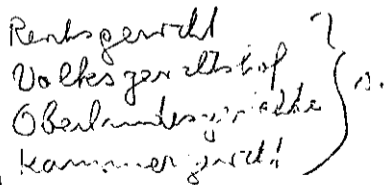 Reichsgericht
Volksgerichtshof
Oberlandesgerichte
Kammergericht